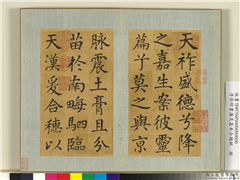 天祚盛德兮降
之嘉生案彼靈
篇莫之與京
脈震土膏且分
苗於南畮駟臨
天漢爰合穗以